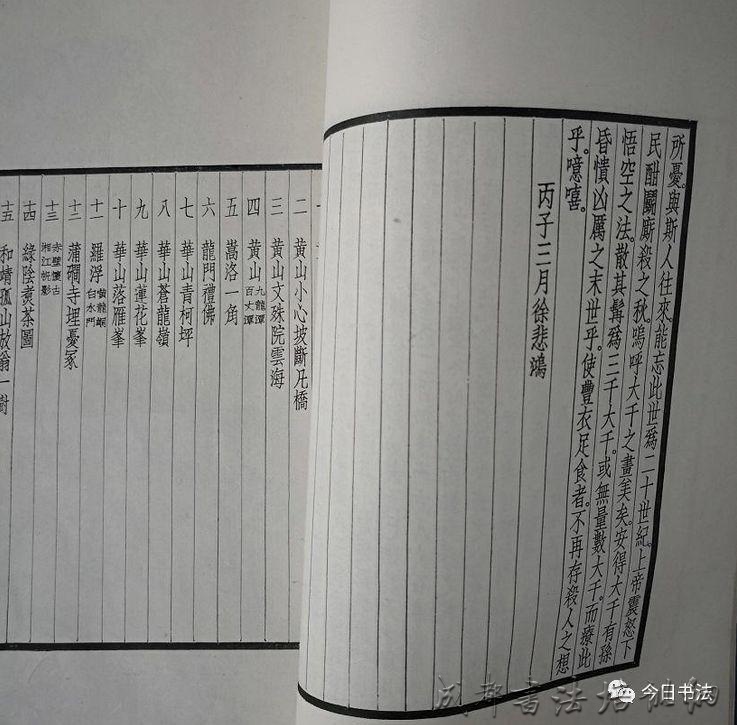 所憂。與斯人往來。能忘此世爲二十世紀。上帝震怒下
民酣鬬廝殺之秋。嗚呼大千之畫美矣。安得大千有孫
悟空之法。散其髯爲三千大千。或無量數大千。而療此
昏憒凶厲之末世乎。使豐衣足食者。不再存殺人之想
乎。噫嘻。
丙子三月徐悲鴻
一
二 黄山小心坡斷凡橋
三 黄山文殊院雲海
四 黄山 九龍潭 百丈潭
五 嵩洛一角
六 龍門禮佛
七 華山青柯坪
八 華山蒼龍嶺
九 華山蓮花峯
十 華山落雁峯
十一 羅浮 黄龍峒 白水門
十二 蒲磵寺埋憂冢
十三 赤壁懷古 湘江帆影
十四 綠陰煮茶圖
十五 和靖孤山放翁一樹
成都书法
今日书法